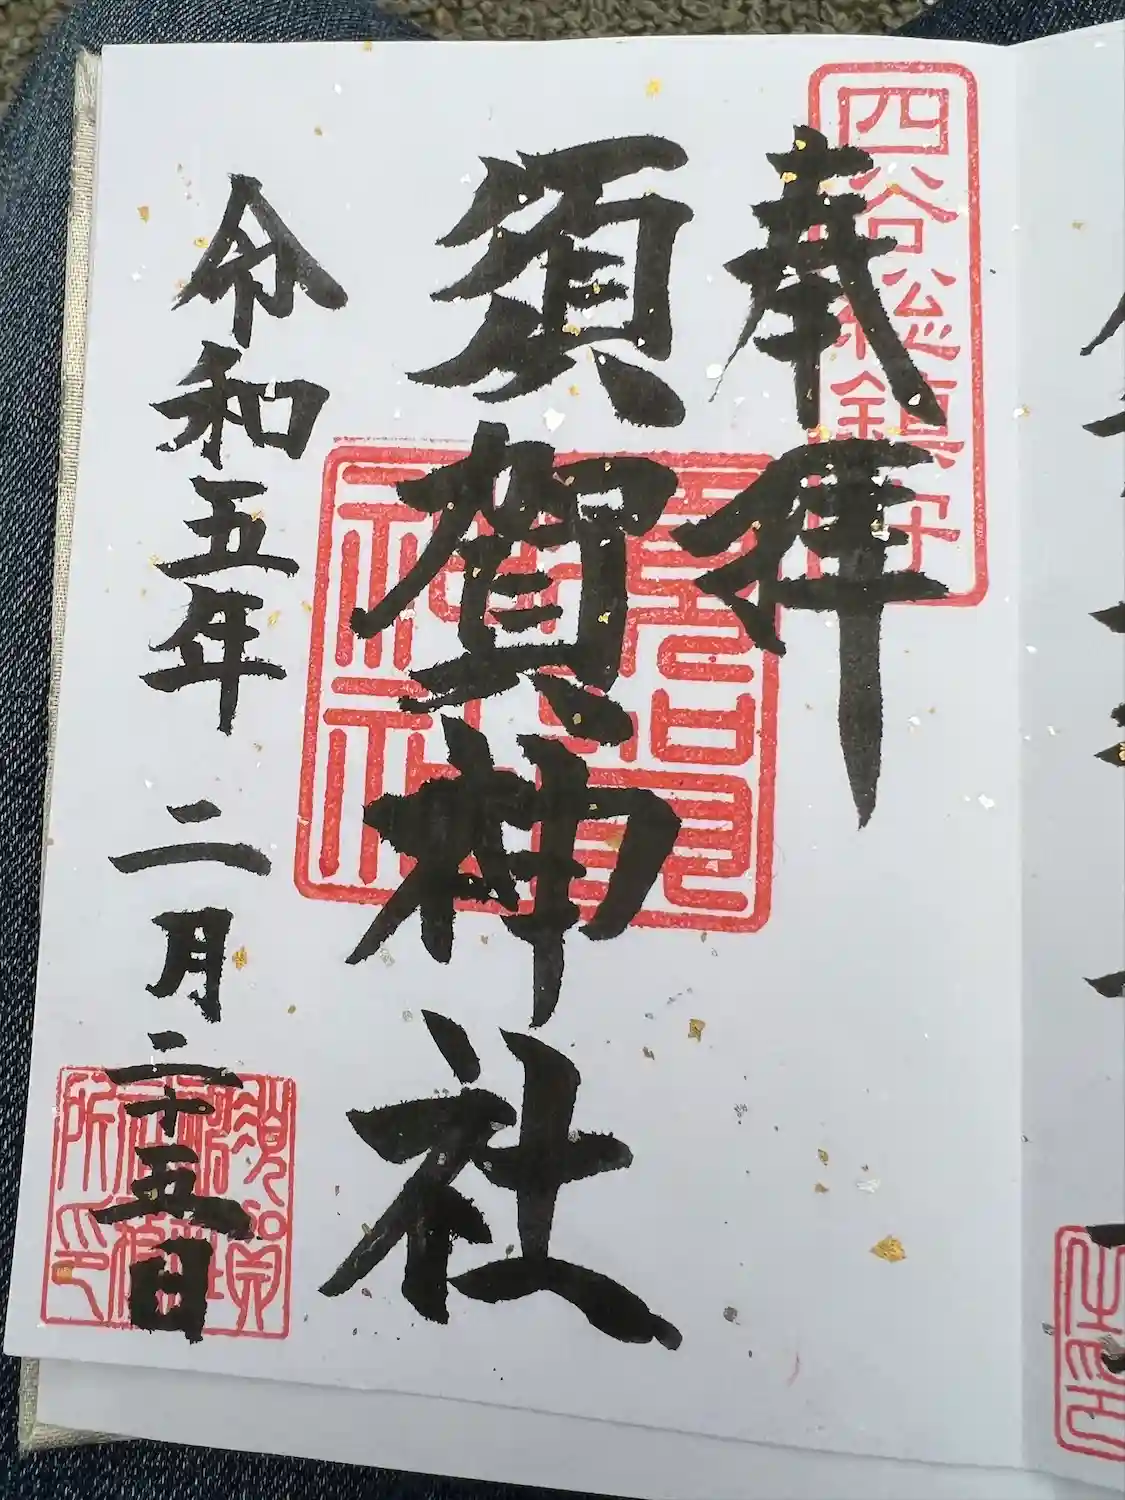 四谷総鎮守
奉拝
須賀神社
令和五年 二月二十五日
須賀神社